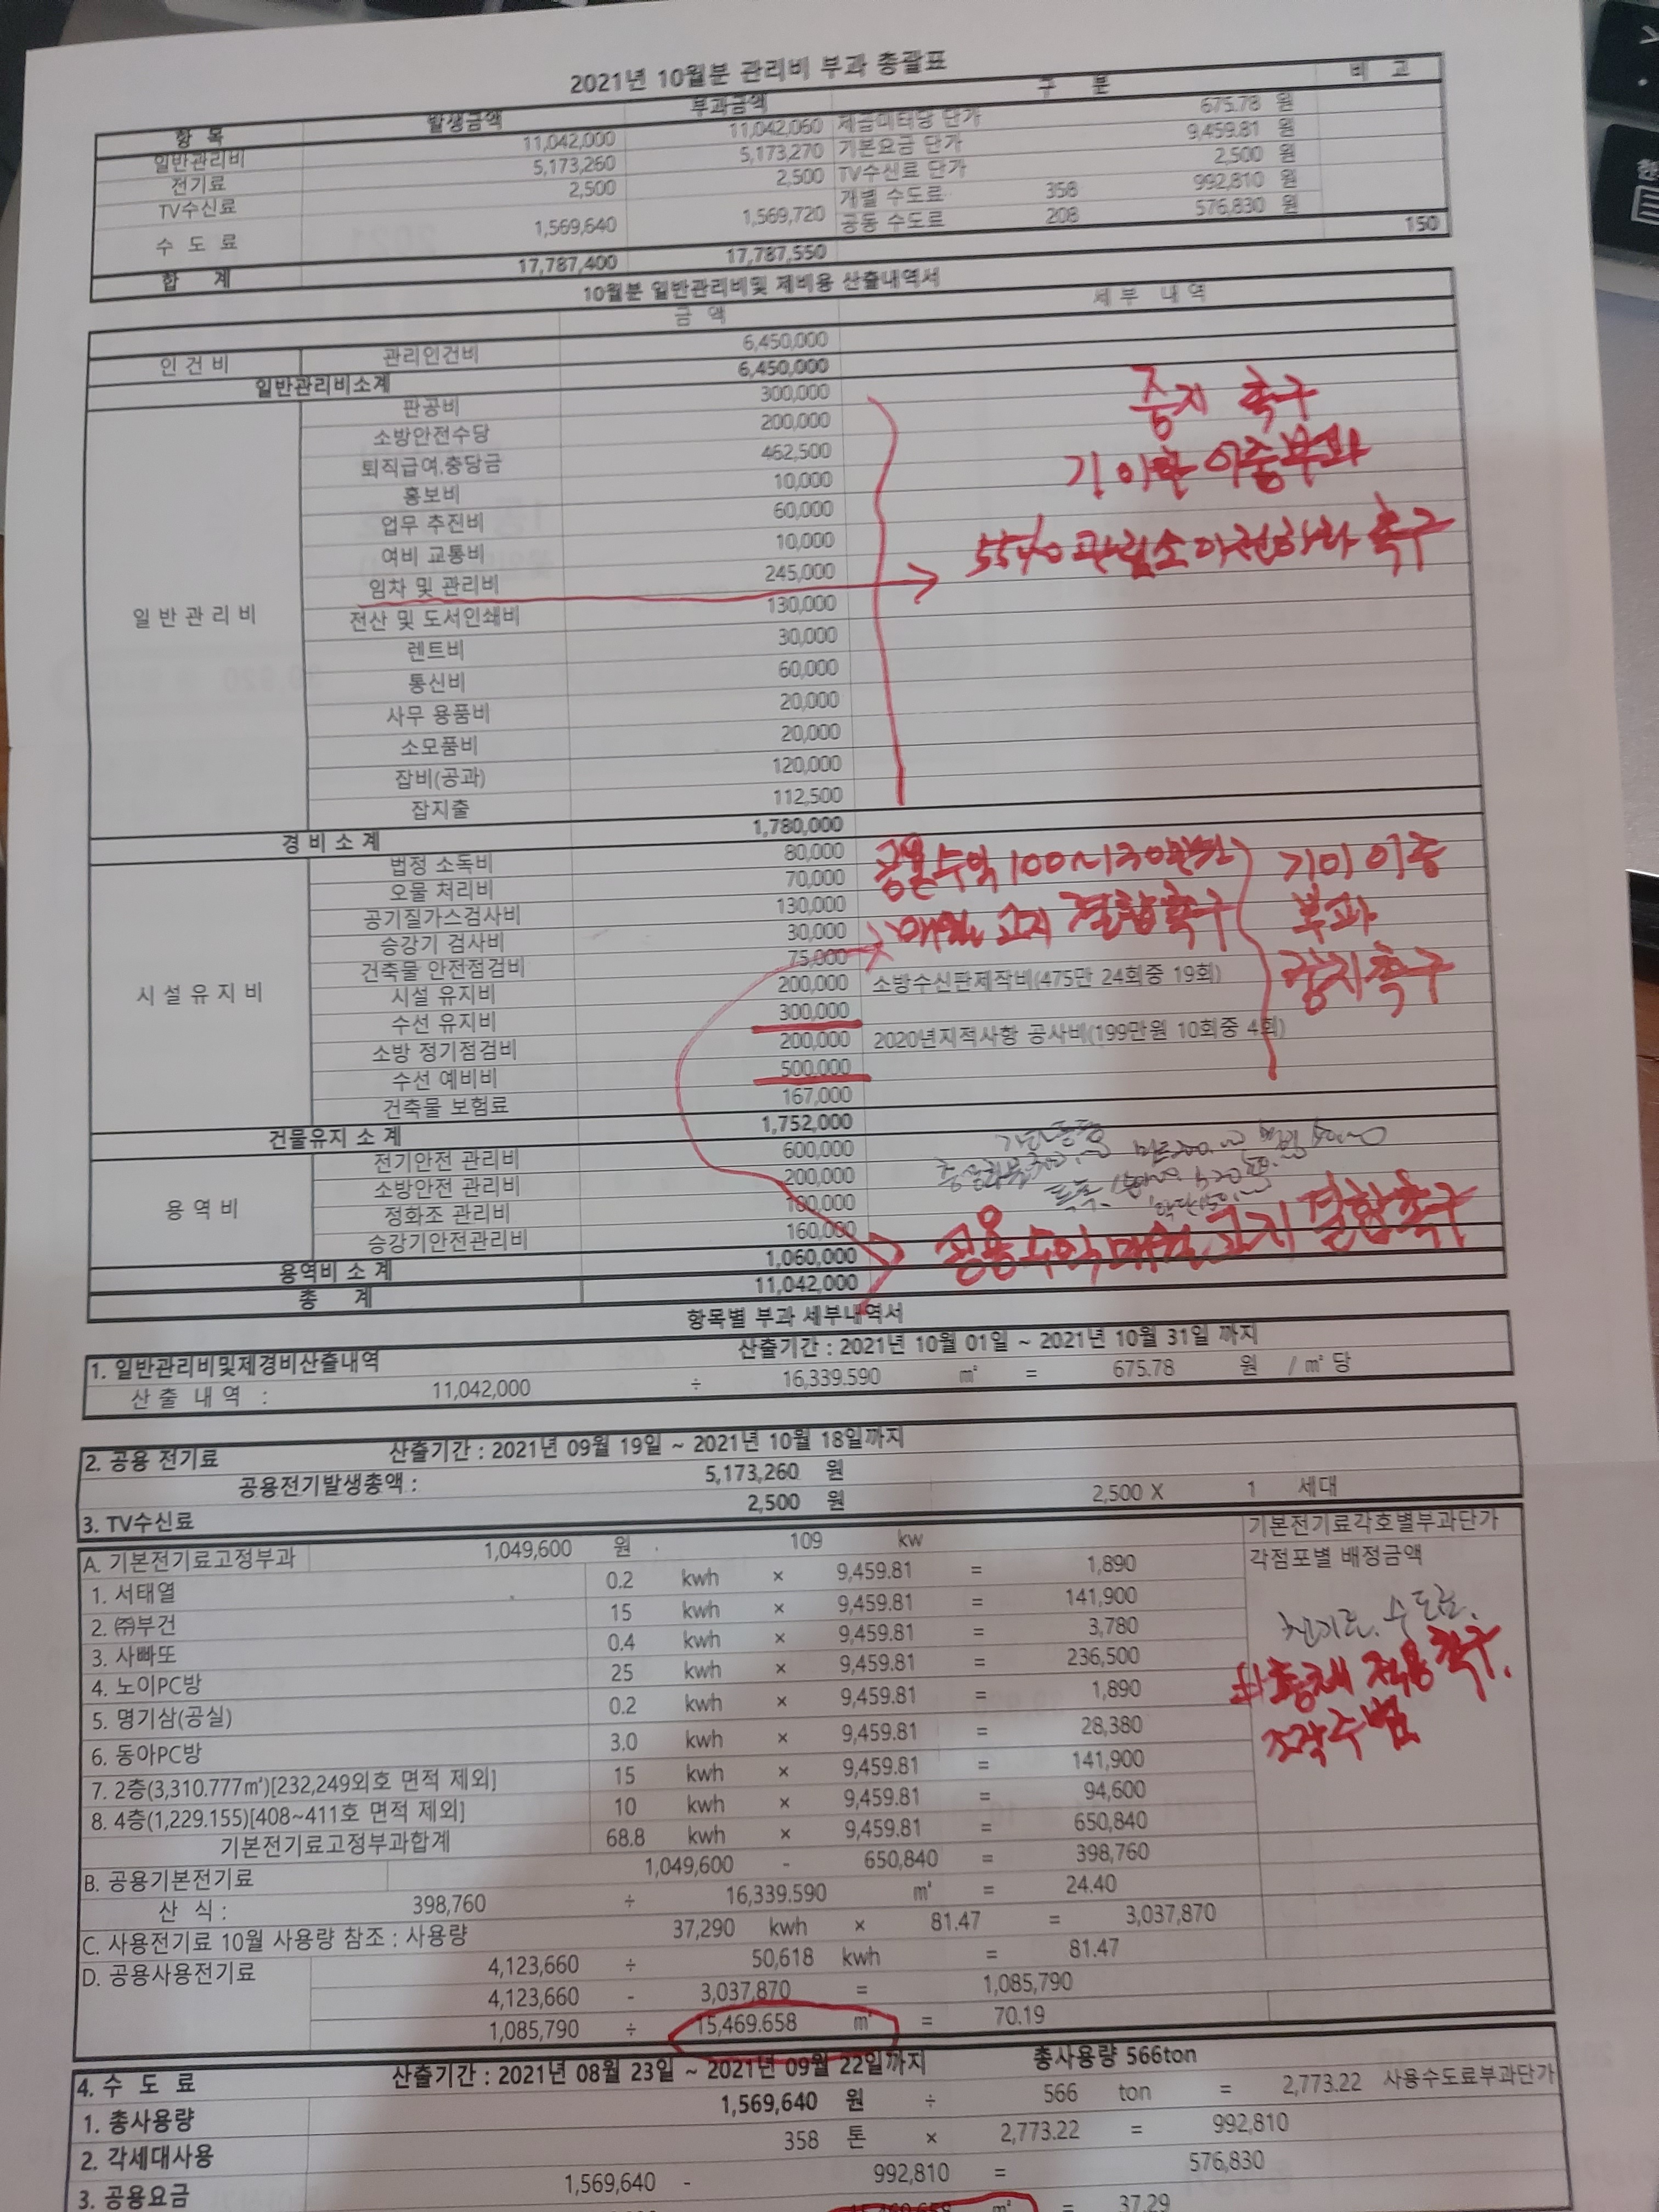 2021년 10월분 관리비 부과 총괄표
항 목 발생금액 부과금액 구 분 비 고
일반관리비 11,042,000 11,042,060 제곱미터당 단가 675.78 원
전기료 5,173,260 5,173,270 기본요금 단가 9,459.81 원
TV수신료 2,500 2,500 TV수신료 단가 2,500 원
수 도 료 1,569,640 1,569,720 개별 수도료 358 992,810 원
공동 수도료 208 576,830 원
합 계 17,787,400 17,787,550 150
10월분 일반관리비및 제비용 산출내역서
금 액 세 부 내 역
인 건 비 관리인건비 6,450,000
일반관리비소계 6,450,000
일 반 관 리 비 판공비 300,000
소방안전수당 200,000
퇴직급여.충당금 462,500
홍보비 10,000
업무 추진비 60,000
여비 교통비 10,000
임차 및 관리비 245,000
전산 및 도서인쇄비 130,000
렌트비 30,000
통신비 60,000
사무 용품비 20,000
소모품비 20,000
잡비(공과) 120,000
잡지출 112,500
경 비 소 계 1,780,000
중지 촉구
이중부과
촉구
시 설 유 지 비 법정 소독비 80,000
오물 처리비 70,000
공기질가스검사비 130,000
승강기 검사비 30,000
건축물 안전점검비 75,000
시설 유지비 200,000 소방수신판제작비(475만 24회중 19회)
수선 유지비 300,000
소방 정기점검비 200,000 2020년지적사항 공사비(199만원 10회중 4회)
수선 예비비 500,000
건축물 보험료 167,000
건물유지 소 계 1,752,000
공용수익
매월 고지 결합촉구
이중
부과
용 역 비 전기안전 관리비 600,000
소방안전 관리비 200,000
정화조 관리비 100,000
승강기안전관리비 160,000
용역비 소 계 1,060,000
총 계 11,042,000
공용수익 매월 고지 결합촉구
항목별 부과 세부내역서
1. 일반관리비및제경비산출내역 산출기간 : 2021년 10월 01일 ~ 2021년 10월 31일 까지
산 출 내 역 : 11,042,000 ÷ 16,339.590 ㎡ = 675.78 원 / ㎡ 당
2. 공용 전기료 산출기간 : 2021년 09월 19일 ~ 2021년 10월 18일까지
공용전기발생총액 : 5,173,260 원
3. TV수신료 2,500 원 2,500 X 1 세대
A. 기본전기료고정부과 1,049,600 원 109 kw 기본전기료각호별부과단가
1. 서태열 0.2 kwh × 9,459.81 = 1,890 각점포별 배정금액
2. ㈜부건 15 kwh × 9,459.81 = 141,900
3. 사빠또 0.4 kwh × 9,459.81 = 3,780
4. 노이PC방 25 kwh × 9,459.81 = 236,500
5. 명기삼(공실) 0.2 kwh × 9,459.81 = 1,890
6. 동아PC방 3.0 kwh × 9,459.81 = 28,380
7. 2층(3,310.777㎡)[232,249외호 면적 제외] 15 kwh × 9,459.81 = 141,900
8. 4층(1,229.155)[408~411호 면적 제외] 10 kwh × 9,459.81 = 94,600
기본전기료고정부과합계 68.8 kwh × 9,459.81 = 650,840
전기료. 수도료.
적용 촉구.
조작수법
B. 공용기본전기료 1,049,600 - 650,840 = 398,760
산 식 : 398,760 ÷ 16,339.590 ㎡ = 24.40
C. 사용전기료 10월 사용량 참조 : 사용량 37,290 kwh × 81.47 = 3,037,870
D. 공용사용전기료 4,123,660 ÷ 50,618 kwh = 81.47
4,123,660 - 3,037,870 = 1,085,790
1,085,790 ÷ 15,469.658 ㎡ = 70.19
4. 수 도 료 산출기간 : 2021년 08월 23일 ~ 2021년 09월 22일까지 총사용량 566ton
1. 총사용량 1,569,640 원 ÷ 566 ton = 2,773.22 사용수도료부과단가
2. 각세대사용 358 톤 × 2,773.22 = 992,810
3. 공용요금 1,569,640 - 992,810 = 576,830
㎡ = 37.29